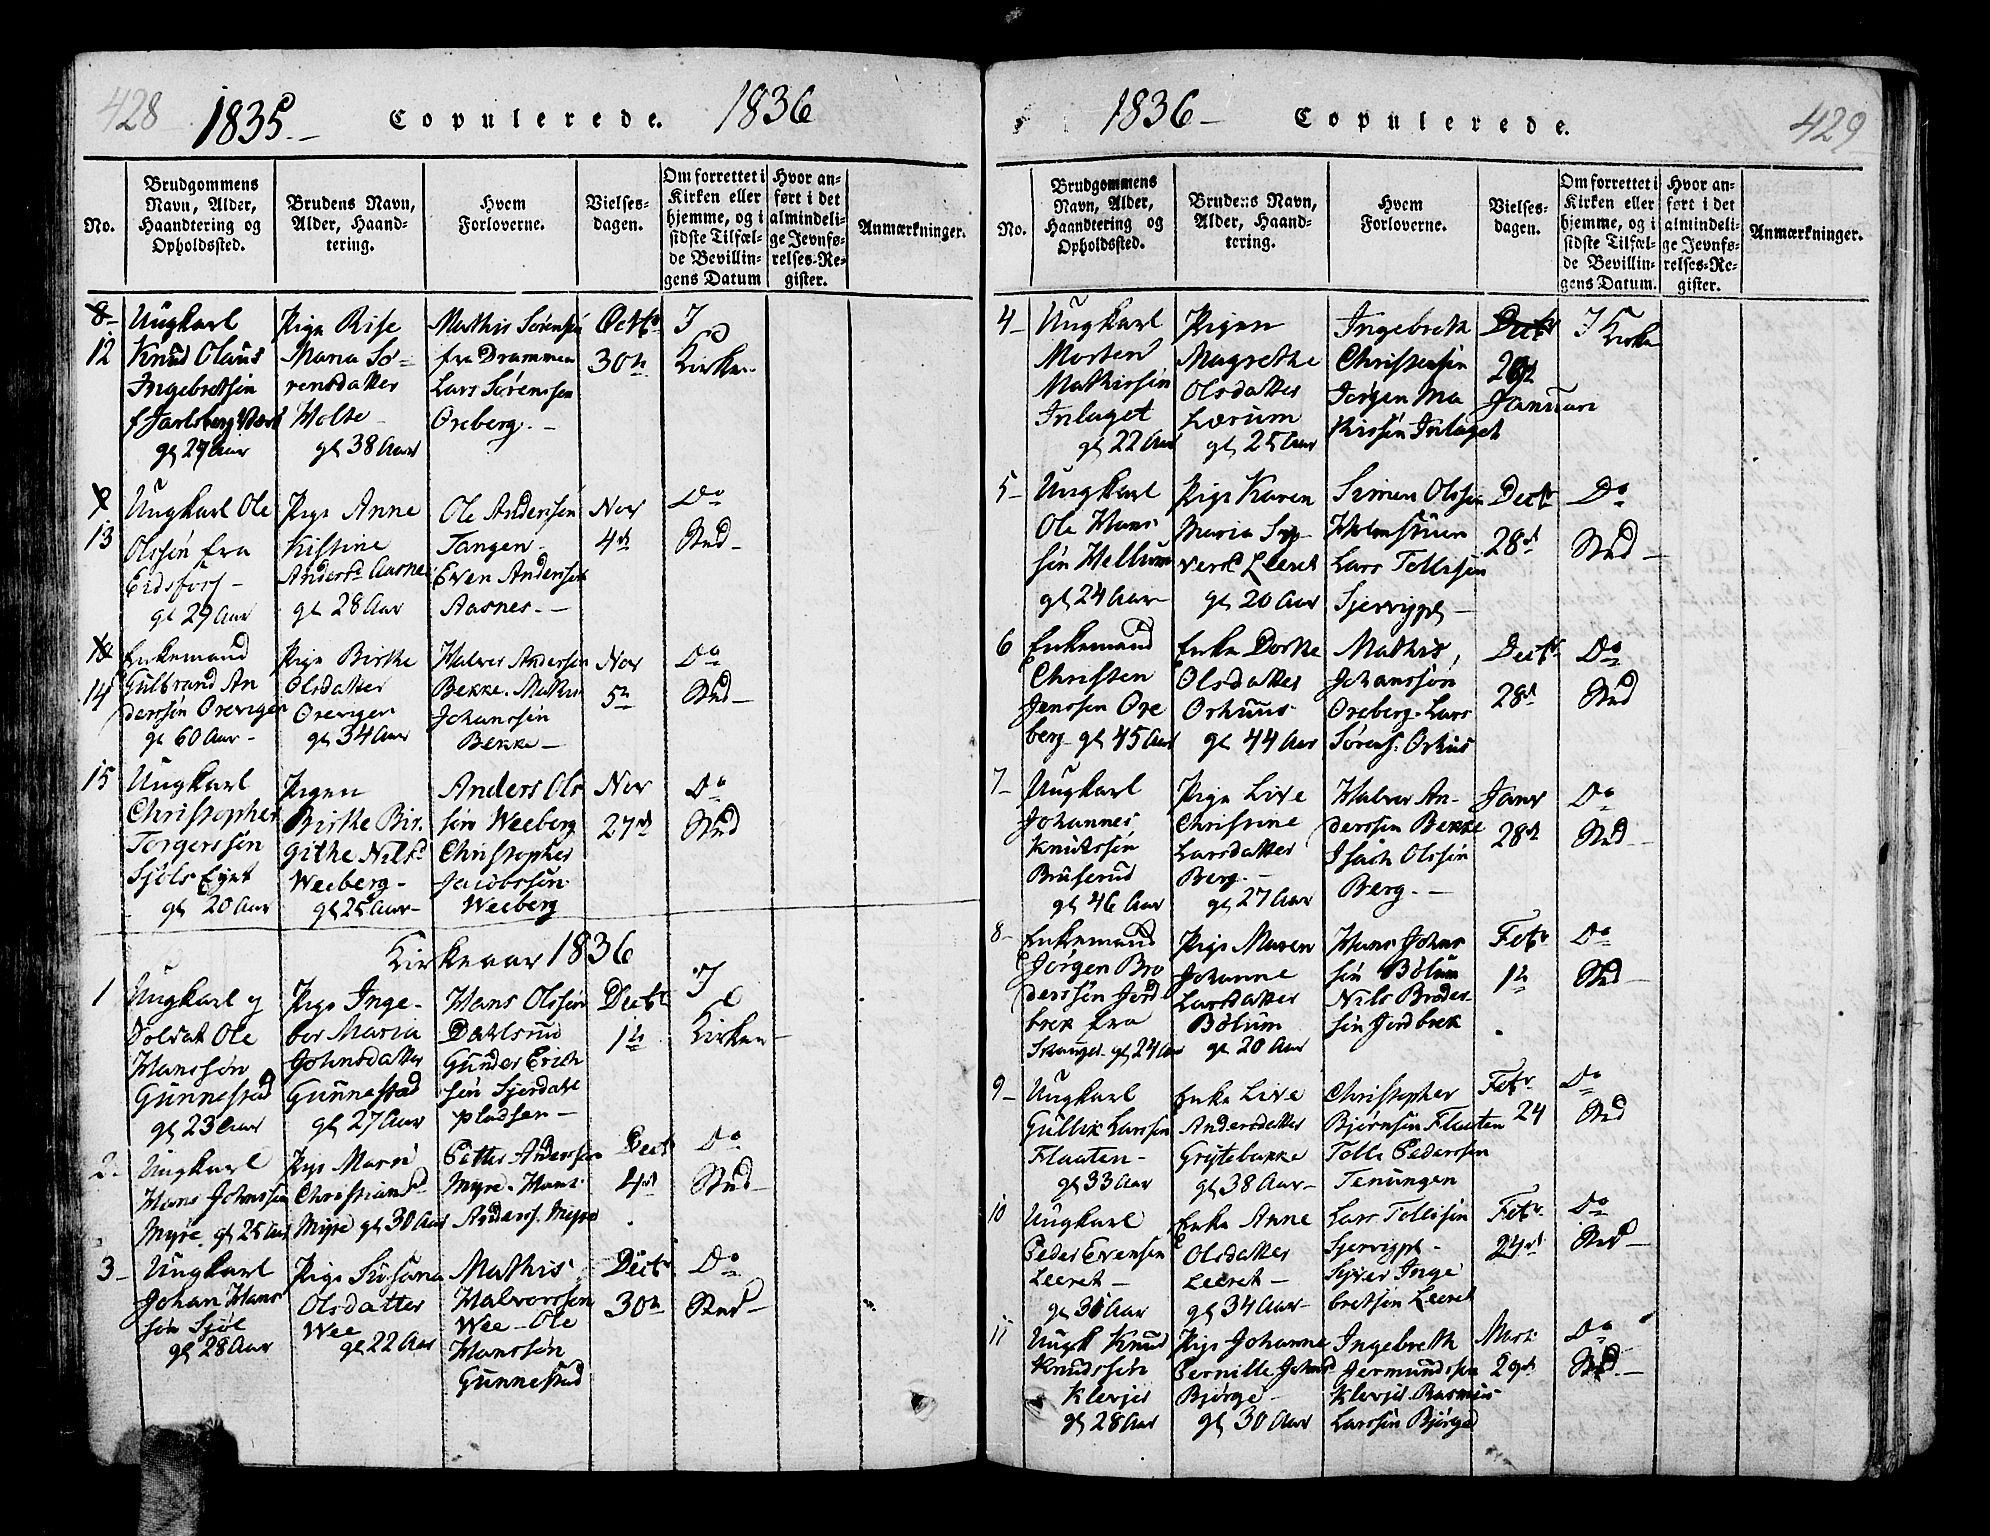 428
1835
Copulerede.
1836
No.
Brudgommens Navn, Alder, Haandtering og Opholdssted.
Brudens Navn, Alder, Haandtering.
Hvem Forloverne.
Vielsesdagen.
Om forrettet i Kirken eller hjemme, og i sidste Tilfælde Bevillingens Datum
Hvor anført i det almindelige Jevnførelses-Register.
Anmærkninger.
8
12
Ungkarl
Knud Olaus
Ingebretsøn
f Jarlsberg
gl 29 Aar
Pige
Maria Sø-
rensdatter
Holte
gl 38 Aar
Mathis Sørensøn
fra Drammen
Lars Sørenssøn
Oreberg.
Octbr
30te
I
Kirken
13
Ungkarl Ole
Olssøn fra
Eidsfors
gl 29 Aar
Pige Anne
Kistine
Andersd Aasnes
gl 28 Aar
Ole Anderssøn
Tangen
Even Anderssøn
Aasnes.
Nov
4de
Do
Sted
14
Enkemand
Gulbrand An
derssøn Oreviger
gl 60 Aar
Pige Birthe
Olsdatter
Oreviger
gl 34 Aar
Halver Anderssøn
Bekke. Mathis
Johanssøn
Bekke
Nov
5te
Do
Sted
15
Ungkarl
Christopher
Torgerssøn
Sjøls Eyet
gl 20 Aar
Pigen
Birthe Bir-
githe Nilsd
Weeberg
gl 25 Aar
Anders Ols
søn Weeberg
Christopher
Jacobssøn
Weeberg
Nov
27de
Do
Sted
Kirkeaar 1836
1
Ungkarl og
Soldat Ole
Hanssøn
Gunnestad
gl 23 Aar
Pige Inge-
bor Maria
Johnsdatter
Gunnestad
gl 27 Aar
Hans Olssøn
Dahlsrud
Gunder Erich
søn Sjerdale
pladsen
Decbr
1te
I
Kirken
2
Ungkarl
Hans Johnssøn
Myre gl 25 Aar
Pige Mari
Christiansd
Myre gl 30 Aar
Petter Anderssøn
Myre. Hans
Anderss. Myre
Decbr
4de
Do
Sted
3
Ungkarl
Johan Hans
søn Sjøl
gl 28 Aar
Pige Susana
Olsdatter
Wee
gl 22 Aar
Mathis
Halvorssøn
Wee - Ole
Hanssøn
Gunnestad
Decbr
30te
Do
Sted
1836
Copulerede.
429
No.
Brudgommens Navn, Alder, Haandtering og Opholdssted.
Brudens Navn, Alder, Haandtering.
Hvem Forloverne.
Vielsesdagen.
Om forrettet i Kirken eller hjemme, og i sidste Tilfælde Bevillingens Datum.
Hvor anført i det almindelige Jevnførelses-Register.
Anmærkninger.
4
Ungkarl
Morten
Mathissøn
Inlaget
gl 22 Aar
Pigen
Magrethe
Olsdatter
Lærum
gl 25 Aar
Ingebreth
Christensøn
Jørgen Ma
thissøn Inlaget
Januari
I Kirke
5
Ungkarl
Ole Hans
søn Hellum
gl 24 Aar
Pige Karen
Maria Sy-
versd Leeret
gl 20 Aar
Simen Olssøn
Holmstuen
Lars Tollissøn
Sjervippl
Decbr
28de
Do
Sted
6
Enkemand
Christen
Jenssøn Ore
berg gl 45 Aar
Enke Dorthe
Olsdatter
Orhuus
gl 44 Aar
Mathis
Johanssøn
Oreberg. Lars
Sørens. Orhus
Decbr
28de
Do
Sted
7
Ungkarl
Johannes
Knutssøn
Bruserud
gl 46 Aar
Pige Live
Christine
Larsdatter
Berg.
gl 27 Aar
Halver An-
derssøn Bekke
Isach Olssøn
Berg.
Janr
28de
Do
Sted
8
Enkemand
Jørgen Bro
derssøn Jord
brek fra
gl 24 Aar
Pige Maren
Johanne
Larsdatter
Bølum
gl 20 Aar
Hans Johns
søn Bølum
Nils Broder-
søn Jordbrek
Febr
1te
Do
Sted
9
Ungkarl
Gullik Larssøn
Flaaten
gl 33 Aar
Enke Live
Andersdatter
Grytebakke
gl 38 Aar
Christopher
Bjørnsøn Flaaten
Tolle Pederssøn
Tenungen
Febr
24
Do
Sted
10
Ungkarl
Peder Evensøn
Leeret
Enke Anne
Olsdatter
Leeret
gl 34 Aar
Lars Tollisøn
Sjervippl
Syver Inge
bretsøn Leeret
Febr
24de
Do
Sted
11
Ungk Knud
Knudssøn
Klevjer
gl 28 Aar
Pige Johanne
Pernille Johnsd
Bjørge
gl 30 Aar
Ingebreth
Jermundssøn
Klevjer. Rasmus
Larssøn Bjørge
Marts
29de
Do
Sted